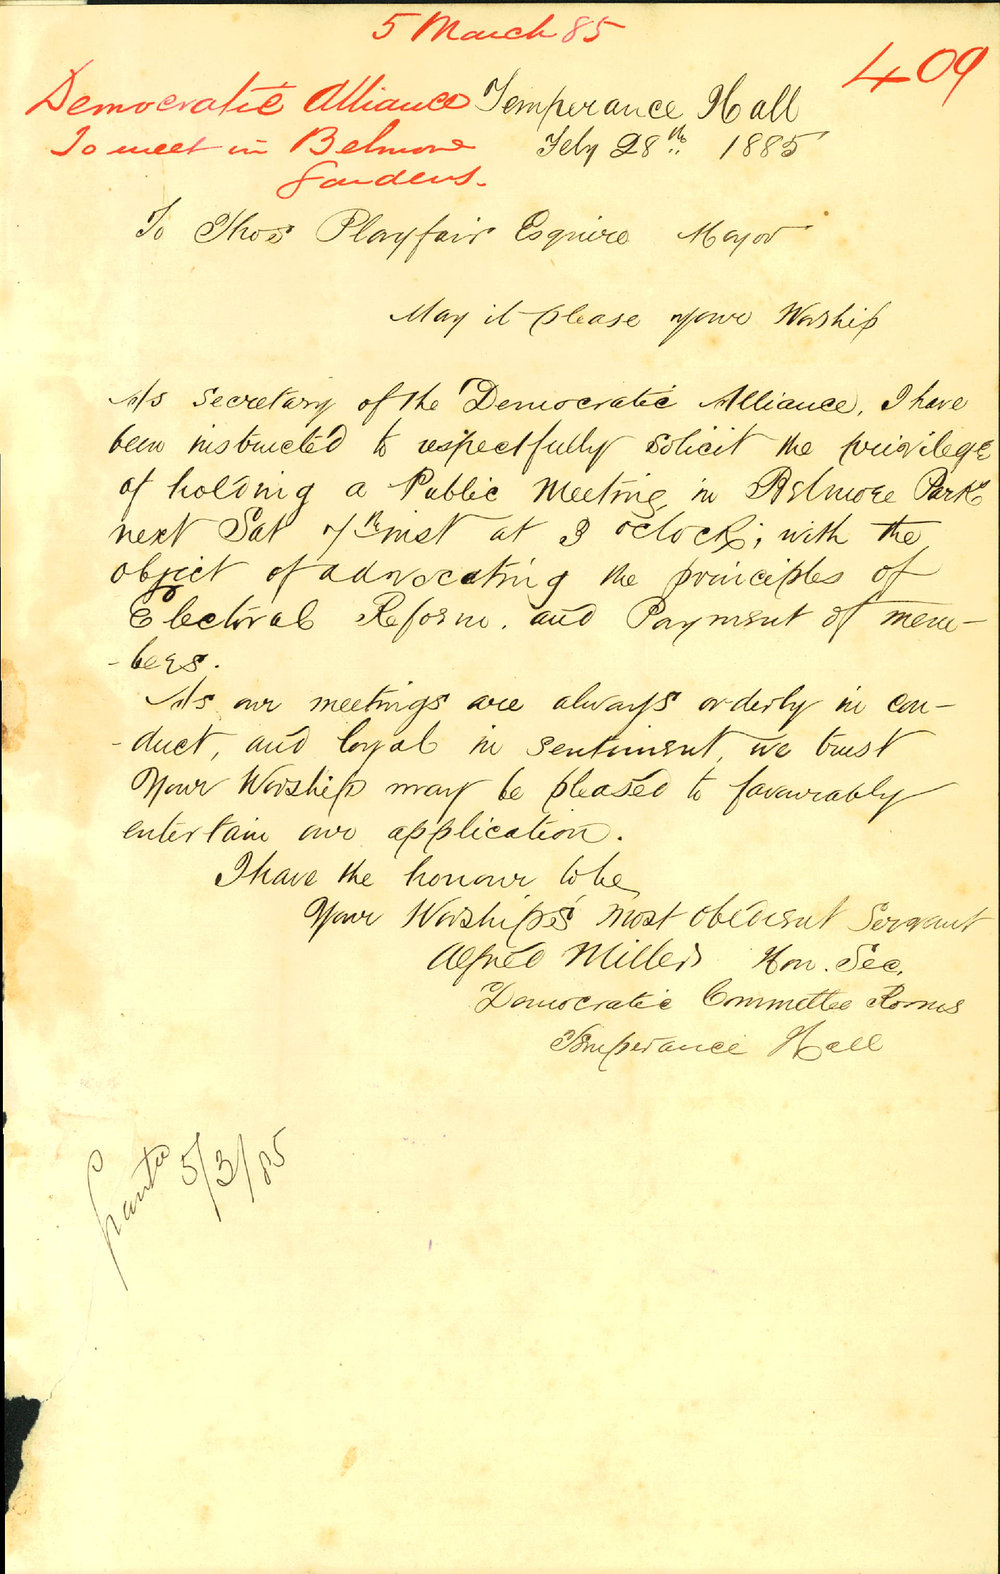 5 March 85
409
Democratic Alliance
To meet in Belmore
Gardens.
Temperance Hall
Feby 28th 1885
To Thos Playfair Esquire Mayor
May it please your Worship
As Secretary of the Democratic Alliance, I have
been instructed to respectfully solicit the privilege
of holding a Public Meeting in Belmore Park
next Sat 7th inst at 3 o'clock; with the
object of advocating the principles of
Electoral Reform. and Payment of mem-
-bers.
As our meetings are always orderly in con-
-duct, and loyal in sentiment, we trust
Your Worship may be pleased to favourably
entertain our application.
I have the honour to be
Your Worship's most obedient Servant
Alfred Miller Hon. Sec.
Democratic Committee Rooms
Temperance Hall
5/3/85